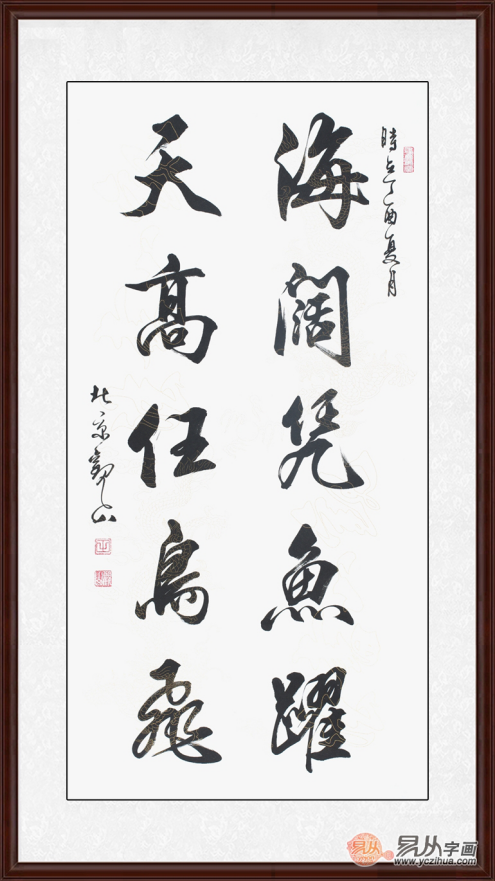 時在丁酉夏月
海闊凭魚躍
天高任鳥飛
北京觀山
易从
易从字画
www.yczihua.com